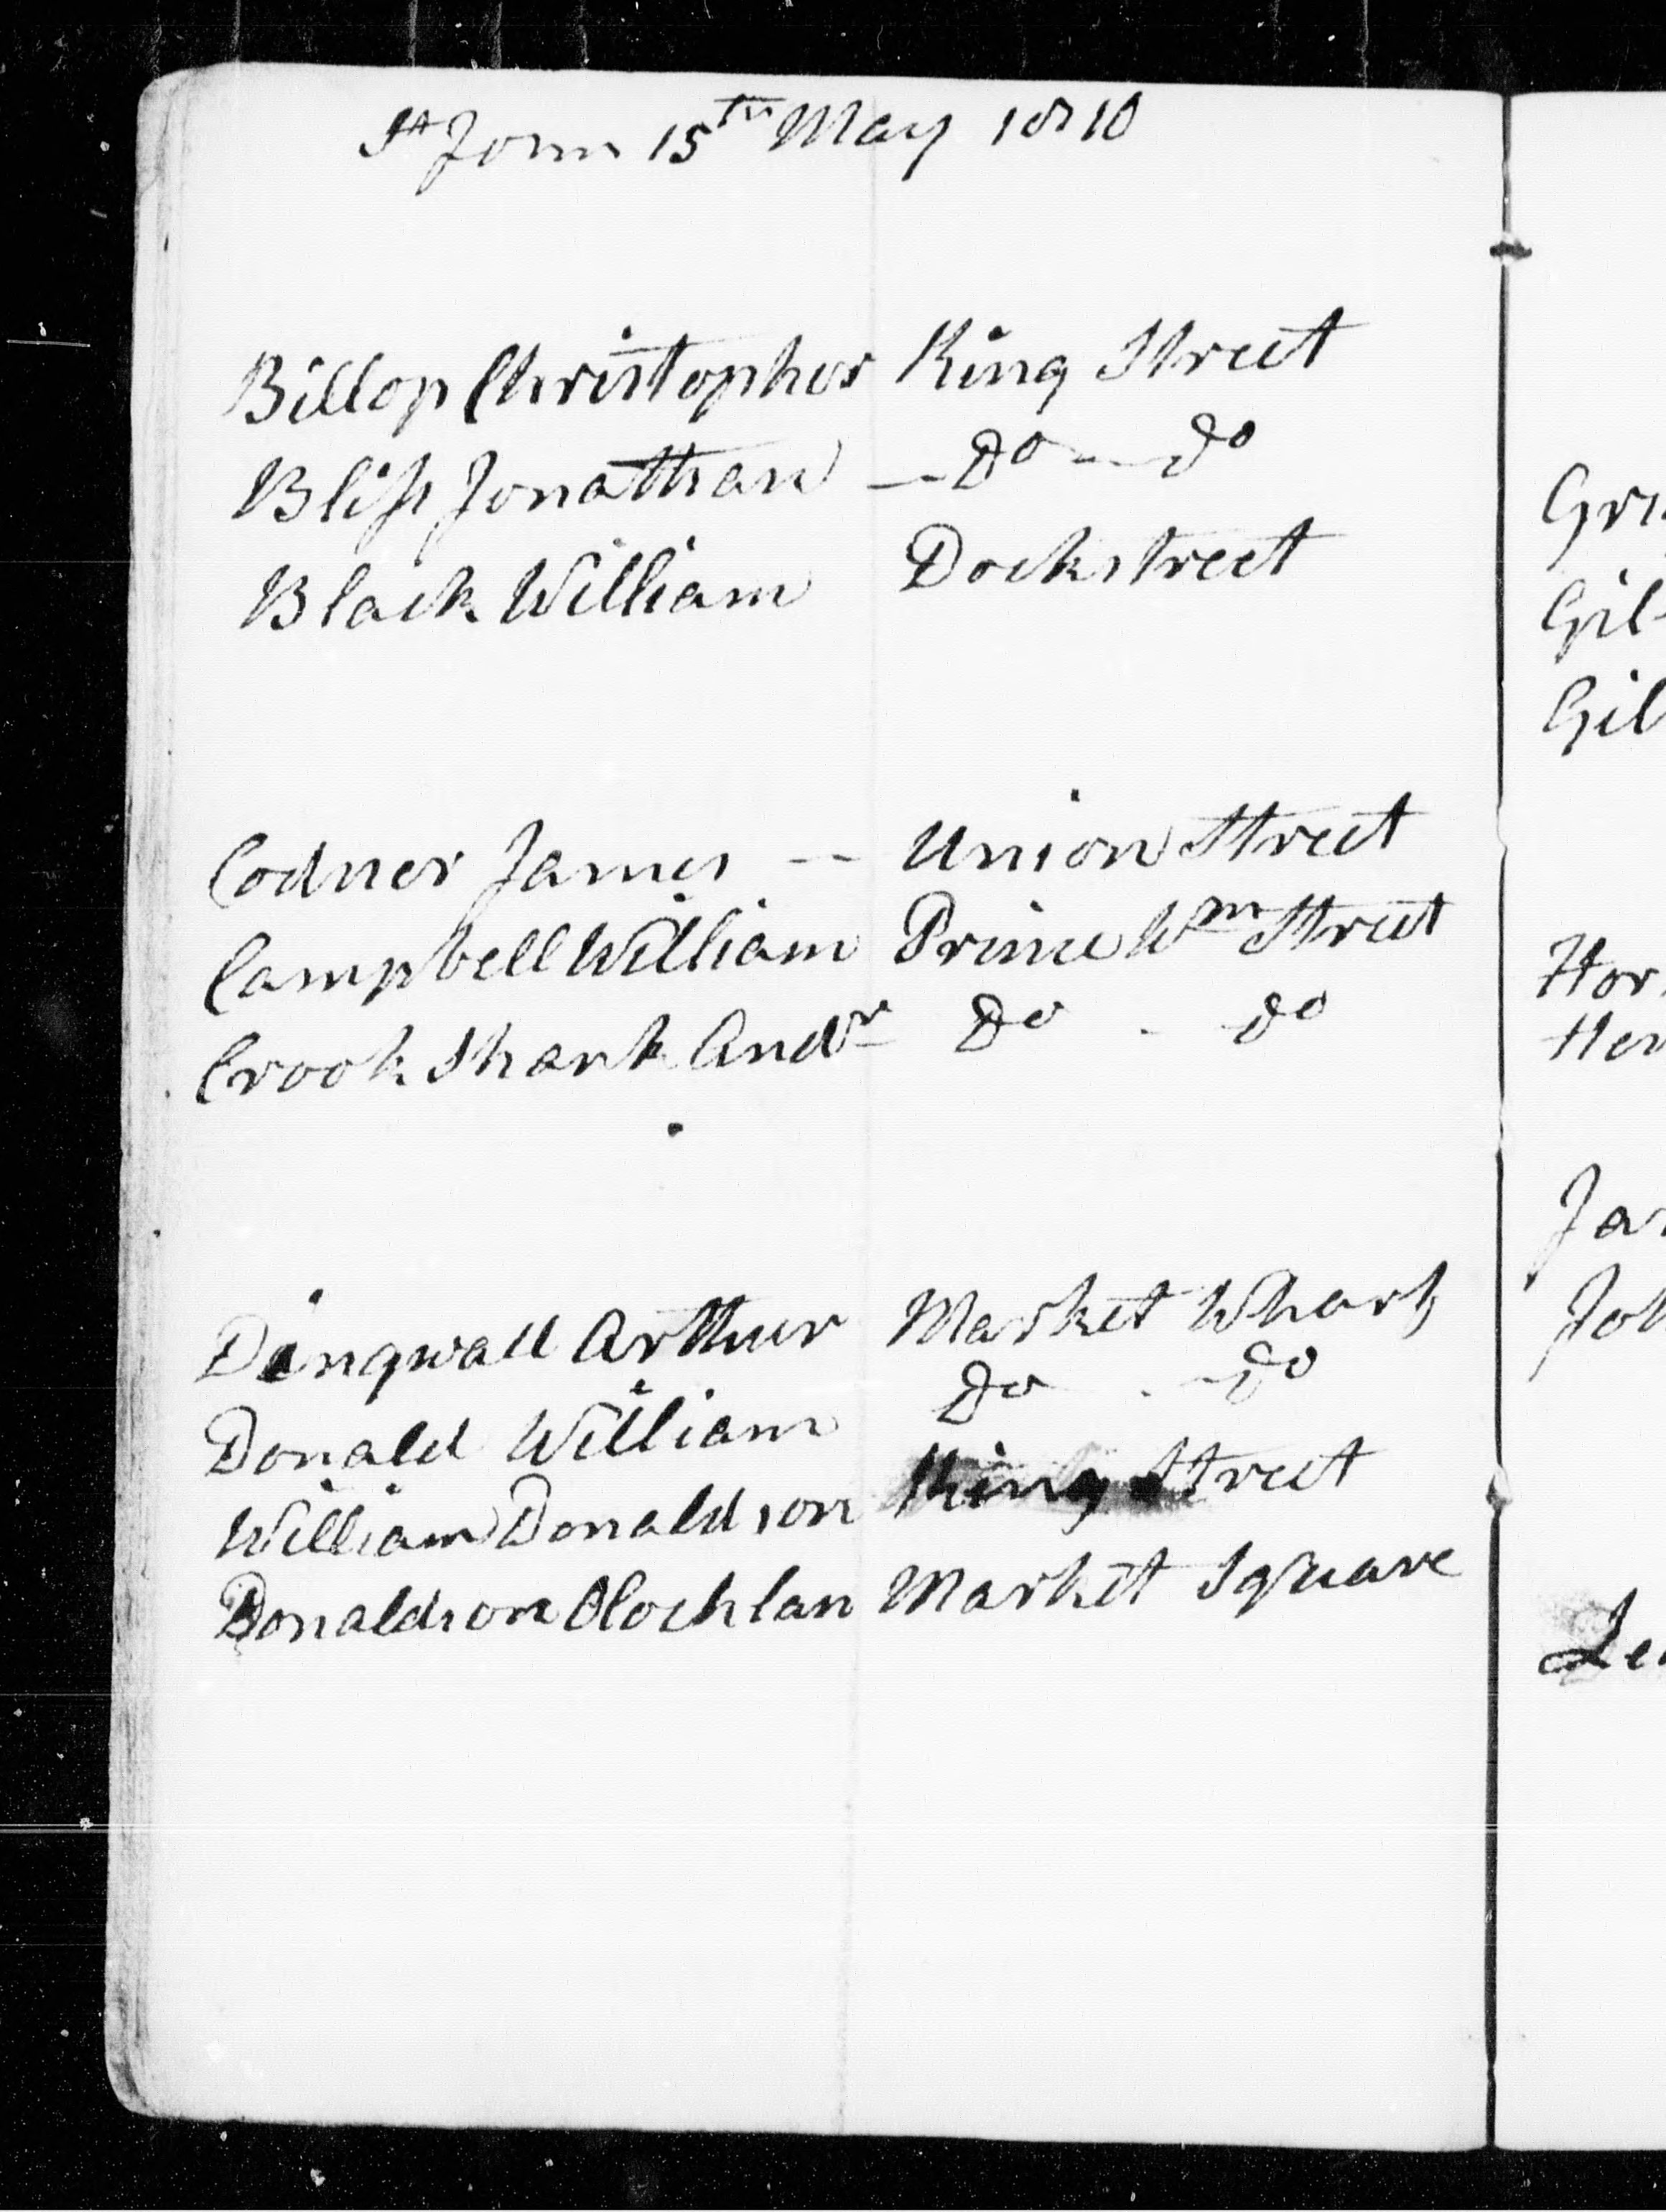 St John 15th May 1810
Billop Christopher King Street
Bliss Jonathan — Do — do
Black William Dockstreet
Codner James — Union Street
Campbell William Prince Wm Street
Crook Shank Andw Do - do
Dingwall Arthur Market Wharf
Donald William Do - do
William Donaldson King Street
Donaldson Lochlan Market Square
Gil
Gil
Hor
Her
Jar
Joh